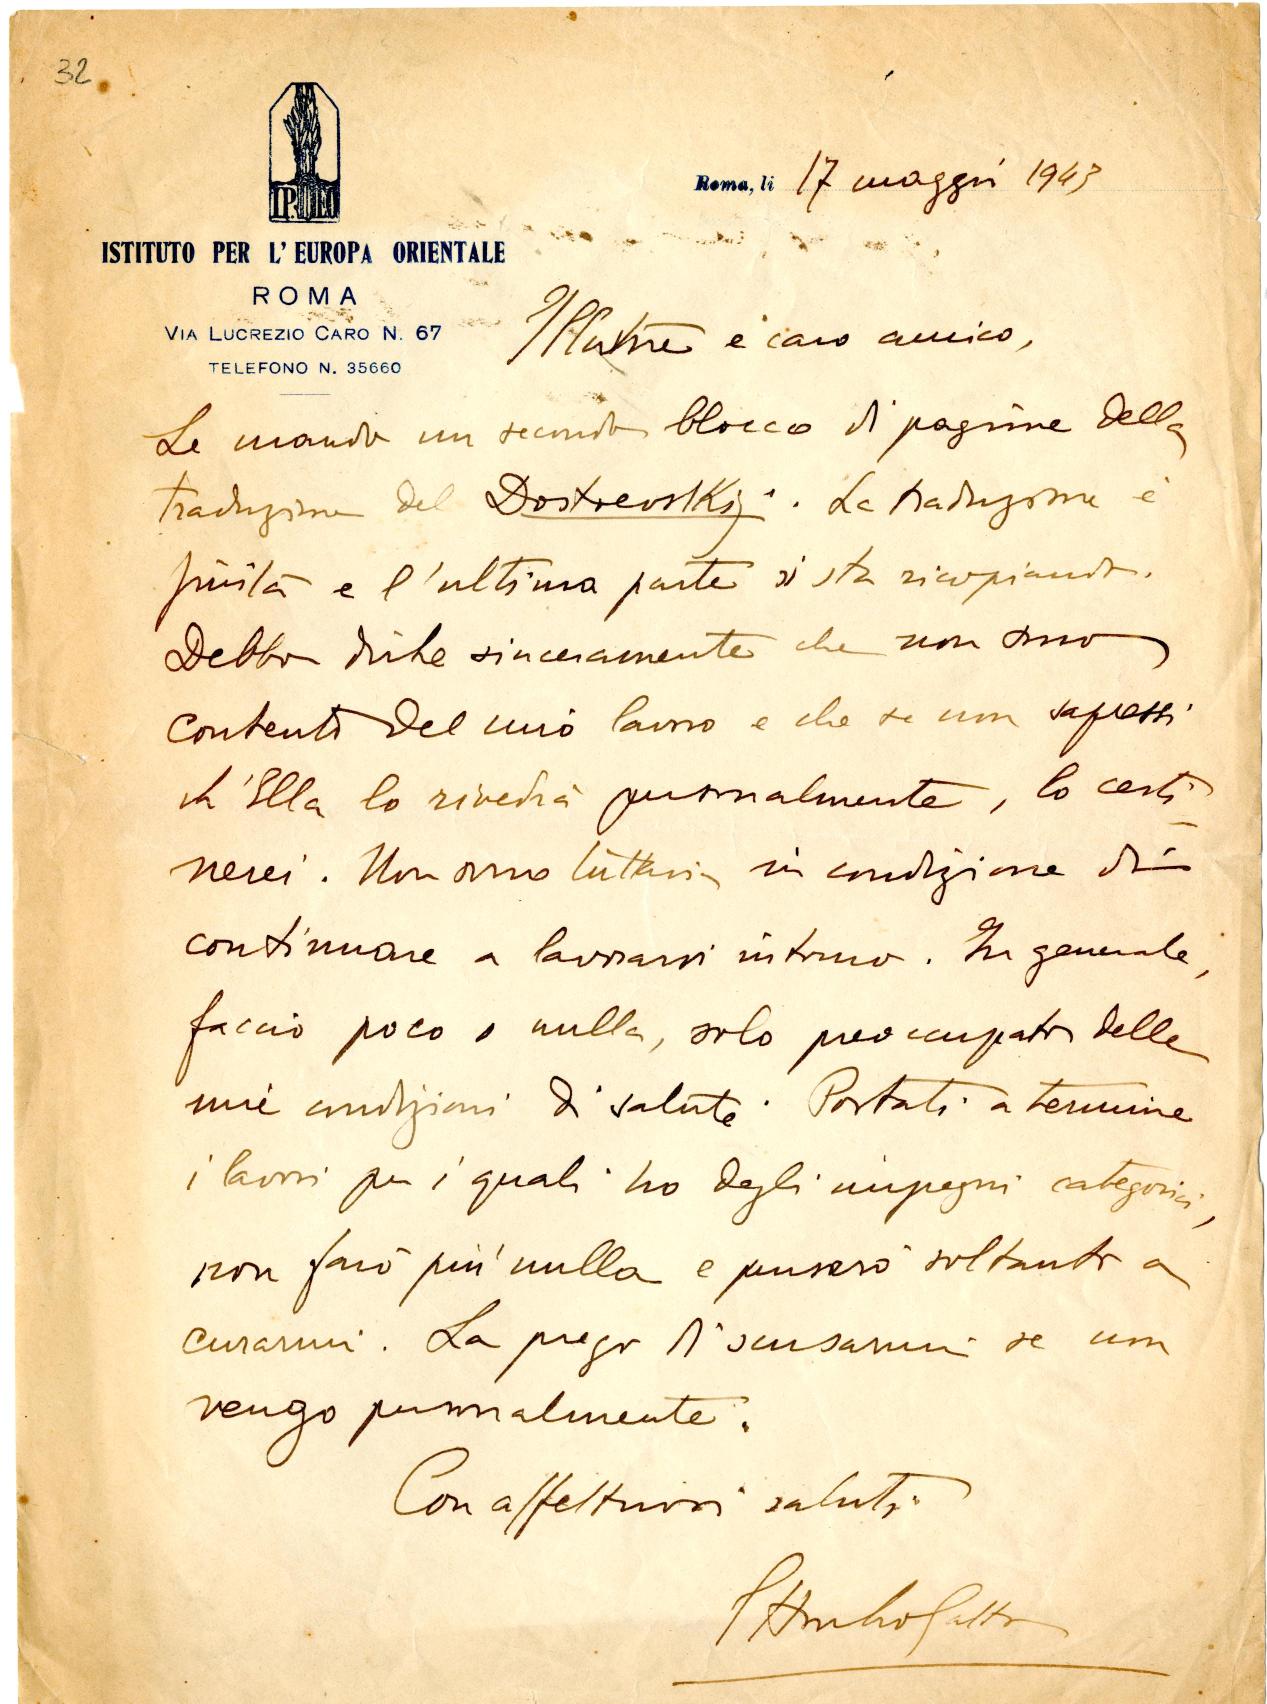 32
IPEO
Roma, li 17 maggio 1943
ISTITUTO PER L'EUROPA ORIENTALE
ROMA
VIA LUCREZIO CARO N. 67
TELEFONO N. 35660
Illustre e caro amico,
Le mando un secondo blocco di pagine della
traduzione del Dostoevskij. La traduzione è
finita e l'ultima parte si sta ricopiando.
Debbo dirLe sinceramente che non sono
contento del mio lavoro e che se non sapessi
ch'Ella lo rivedrà personalmente, lo cesti-
nerei. Non sono tuttavia in condizione di
continuare a lavorarvi intorno. In generale,
faccio poco o nulla, solo preoccupato delle
mie condizioni di salute. Portati a termine
i lavori per i quali ho degli impegni categorici,
non farò più nulla e penserò soltanto a
curarmi. La prego di scusarmi se non
vengo personalmente.
Con affettuosi saluti